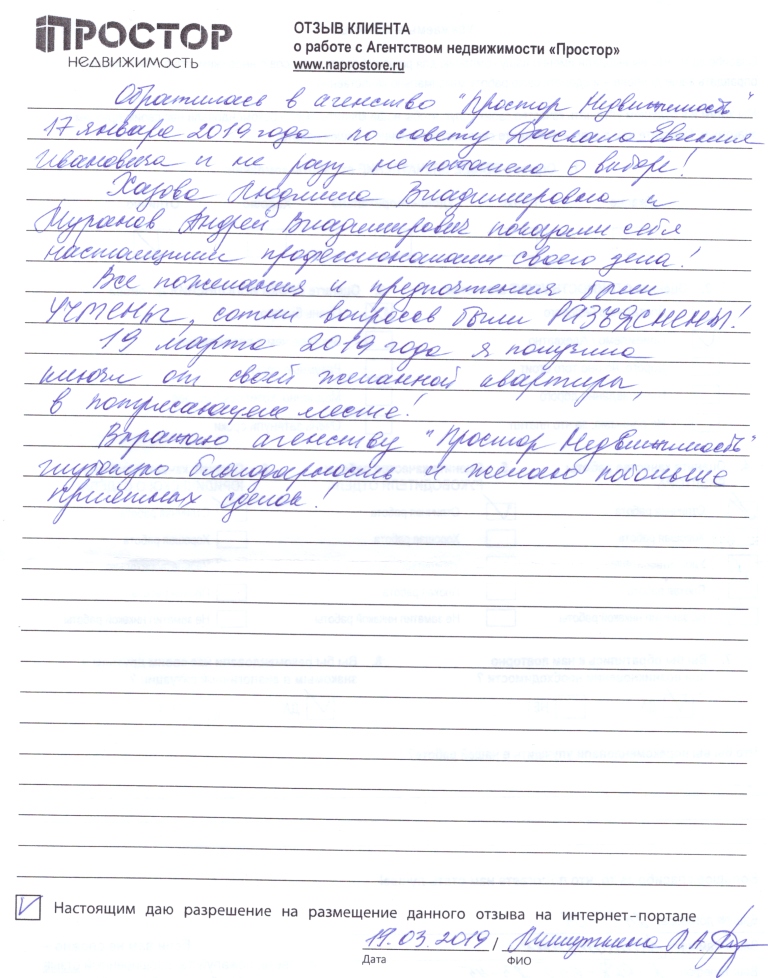 ПРОСТОР
НЕДВИЖИМОСТЬ
ОТЗЫВ КЛИЕНТА
о работе с Агентством недвижимости «Простор»
www.naprostore.ru
Обратилась в агенство "Простор Недвижимость"
17 января 2019 года по совету Даскала Евгения
Ивановича и не разу не пожалела о выборе!
Хазова Людмила Владимировна и
Муранов Андрей Владимирович показали себя
настоящими профессионалами своего дела!
Все пожелания и предпочтения были
УЧТЕНЫ, сотни вопросов были РАЗЪЯСНЕНЫ!
19 марта 2019 года я получила
ключи от своей желанной квартиры,
в потрясающем месте!
Выражаю агенству "Простор Недвижимость"
глубокую благодарность и желаю побольше
приятных сделок!
V Настоящим даю разрешение на размещение данного отзыва на интернет-портале
19.03.2019 / Л.А.
Дата ФИО